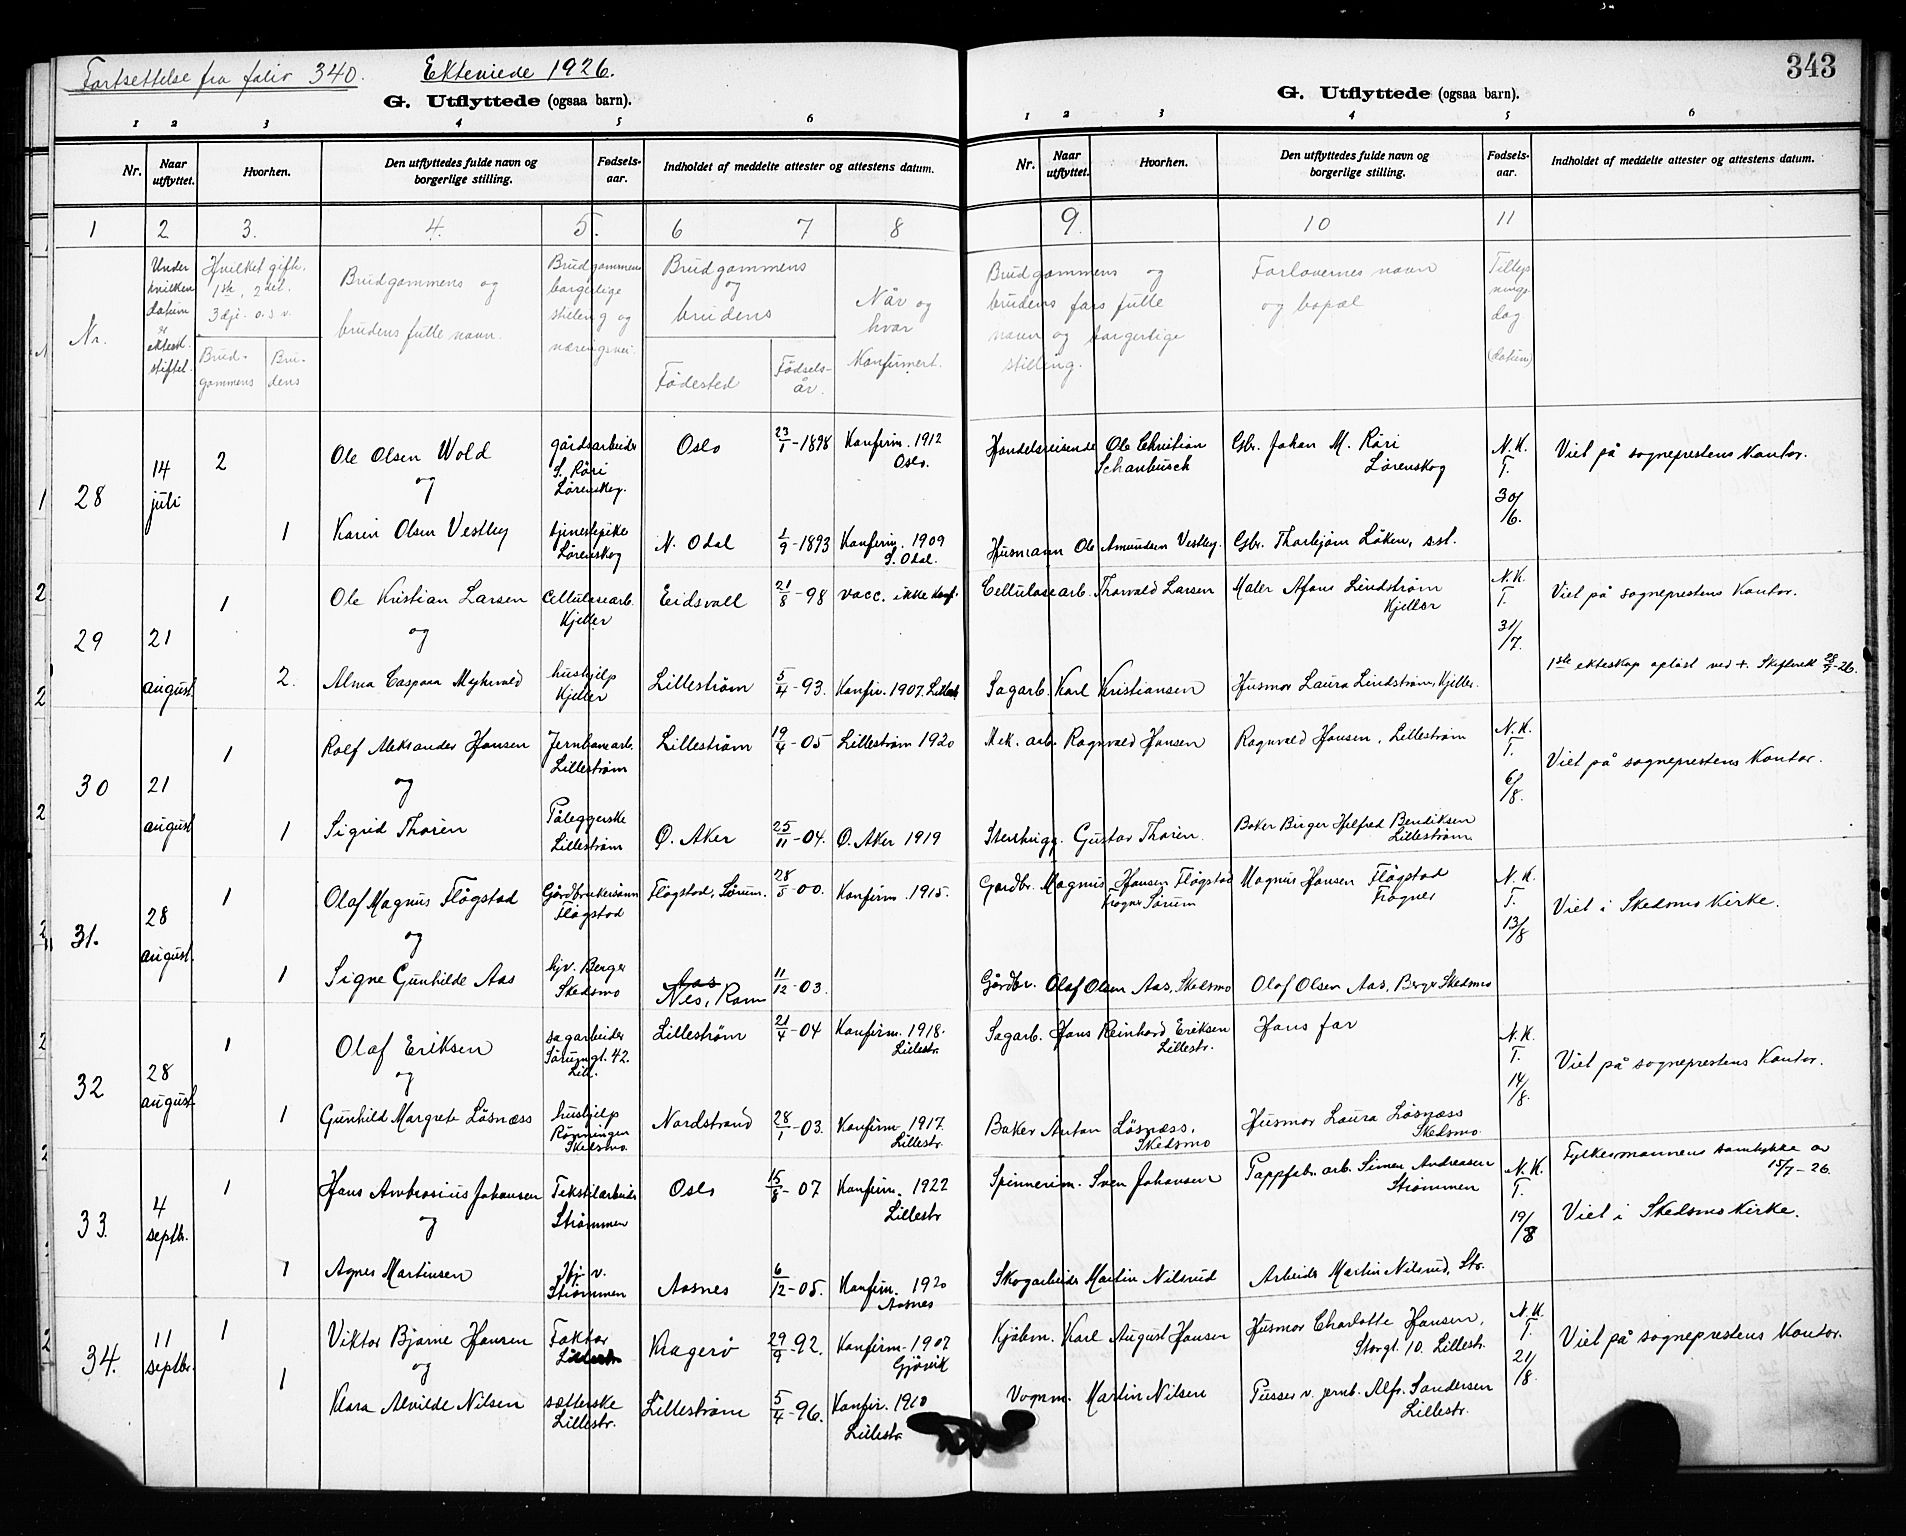 Fortsettelse fra folio 340. Ekteviede 1926.
343
G. Utflyttede (ogsaa barn).
G. Utflyttede (ogsaa barn).
1 2 3 4 5 6
1 2 3 4 5 6
Nr.
Naar utflyttet.
Hvorhen.
Den utflyttedes fulde navn og borgerlige stilling.
Fødsels-aar.
Indholdet af meddelte attester og attestens datum.
Nr.
Naar utflyttet.
Hvorhen.
Den utflyttedes fulde navn og borgerlige stilling.
Fødsels-aar.
Indholdet af meddelte attester og attestens datum.
1 2 3. 4. 5. 6 7 8 9. 10 11
Nr.
Under hvilken datum er ektesk. stiftet.
Hvilket gifte. 1ste, 2det. 3dje o.s.v.
Brud-gommens
Bru-dens
Brudgommens og
brudens fulle navn.
Brudgommens borgerlige stilling og næringsvei.
Brudgommens og brudens
Fødested
Fødsels-år.
Når og hvor Konfirmert.
Brudgommens og brudens fars fulle navn og borgerlige stilling.
Forlovernes navn og bopæl
dag
(datum)
28
14 juli
2
Ole Olsen Wold
gårdsarbeider S. Råri Lørenskog.
Oslo
23/1-1898
Konfirm. 1912 Oslo.
Handelsreisende Ole Christian
Gbr. Johan M. Råri Lørenskog
N.K. T. 30/6.
Viet på sogneprestens Kontor.
og
1
Karin Olsen Vestby
tjenestepike Lørenskog
N. Odal
1/9-1893
Konfirm. 1909 S. Odal.
Husmann Ole Amundsen Vestby.
Gbr. Thorbjørn Løken, s.st.
29
21 august
1
Ole Kristian Larsen
Cellulosearb. Kjeller
Eidsvoll
21/8-98
vacc. ikke konf.
Cellulosearb. Thorvald Larsen
Maler Afons Lindstrøm Kjeller
N.K. T. 31/7.
Viet på sogneprestens Kontor.
og
2.
Alma Caspara Myhrvold
hushjelp Kjeller
Lillestrøm
5/4-93.
Konfir. 1907. Lillestr.
Sagarb. Karl Kristiansen
Husmor Laura Lindstrøm, Kjeller.
1ste ekteskap opløst ved +. Skifteatt. -26.
30
21 august
1
Rolf Aleksander Hansen
Jernbanearb. Lillestrøm
Lillestrøm
19/4-05
Lillestrøm 1920
Mek. arb. Ragnvald Hansen
Ragnvald Hansen, Lillestrøm
N.K. T. 6/8.
Viet på sogneprestens Kontor.
og
1
Sigrid Thoren
Påleggerske Lillestrøm
Ø. Aker
25/11-04.
Ø. Aker 1919
Stenhugg. Gustav Thoren.
Baker Birger Hilfred Bendiksen Lillestrøm
31.
28 august.
1
Olaf Magnus Fløgstad
Gårdbrukersønn Fløgstad
Fløgstad, Sørum.
28/5-00.
Konfirm. 1915.
Gardbr. Magnus Hansen Fløgstad Frogner Sørum
Magnus Hansen Fløgstad Frogner
N.K. T. 13/8
Viet i Skedsmo Kirke.
og
1
Signe Gunhilde Aas
hjv. Berger Skedsmo
Aas
Nes, Rom
11/12-03.
Gårdbr. Olaf Olsen Aas, Skedsmo
Olaf Olsen Aas, Berger Skedsmo
32
28 august
1
Olaf Eriksen
sagarbeider Sørumgt. 42. Lill.
Lillestrøm
21/4-04
Konfirm. 1918. Lillestr.
Sagarb. Hans Reinhard Eriksen Lillestr.
Hans far
N.K. T. 14/8.
Viet på sogneprestens Kontor.
og
1
Gunhild Margrete Løsnæss
hushjelp Rønningen Skedsmo.
Nordstrand
28/1-03.
Konfirm. 1917. Lillestr.
Baker Anton Løsnæss. Skedsmo
Husmor Laura Løsnæss Skedsmo
33.
4 septb.
1
Hans Ambrosius Johansen
Tekstilarbeider Strømmen
Oslo
15/8-07
Konfirm. 1922 Lillestr
Spinnerim. Sven Johansen
Pappfabr. arb. Simen Andreasen Strømmen
N.K. T. 19/8
Fylkesmannens samtykke av 15/7-26.
Viet i Skedsmo Kirke.
og
1
Agnes Martinsen
Hj. v. Strømmen
Aasnes
6/12-05.
Konfirm. 1920 Aasnes
Skogarbeider Martin Nilsrud
Arbeider Martin Nilsrud, Str.
34.
11 septbr.
1
Viktor Bjarne Hansen
Faktor Lillestr.
Kragerø
29/9-92.
Konfirm. 1907 Gjøvik
Kjøbm. Karl August Hansen
Husmor Charlotte Hansen, Storgt. 10. Lillestr.
N.K. T. 21/8.
Viet på sogneprestens Kontor.
og
1
Klara Alvilde Nilsen
sætterske Lillestr.
Lillestrøm
5/4-96.
Konfir. 1910 Lillestr.
Vognm. Martin Nilsen
Pusser v. jernb. Alfr. Sandersen Lillestr.